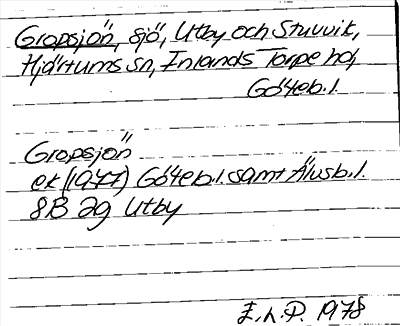 Gropsjön, sjö, Utby och Stuvvik,
Hjärtums sn, Inlands Torpe hd,
Göteb.l.
Gropsjön
ek (1977) Göteb.l. samt Älvsb.l.
8B 2g Utby
E.h.P. 1978